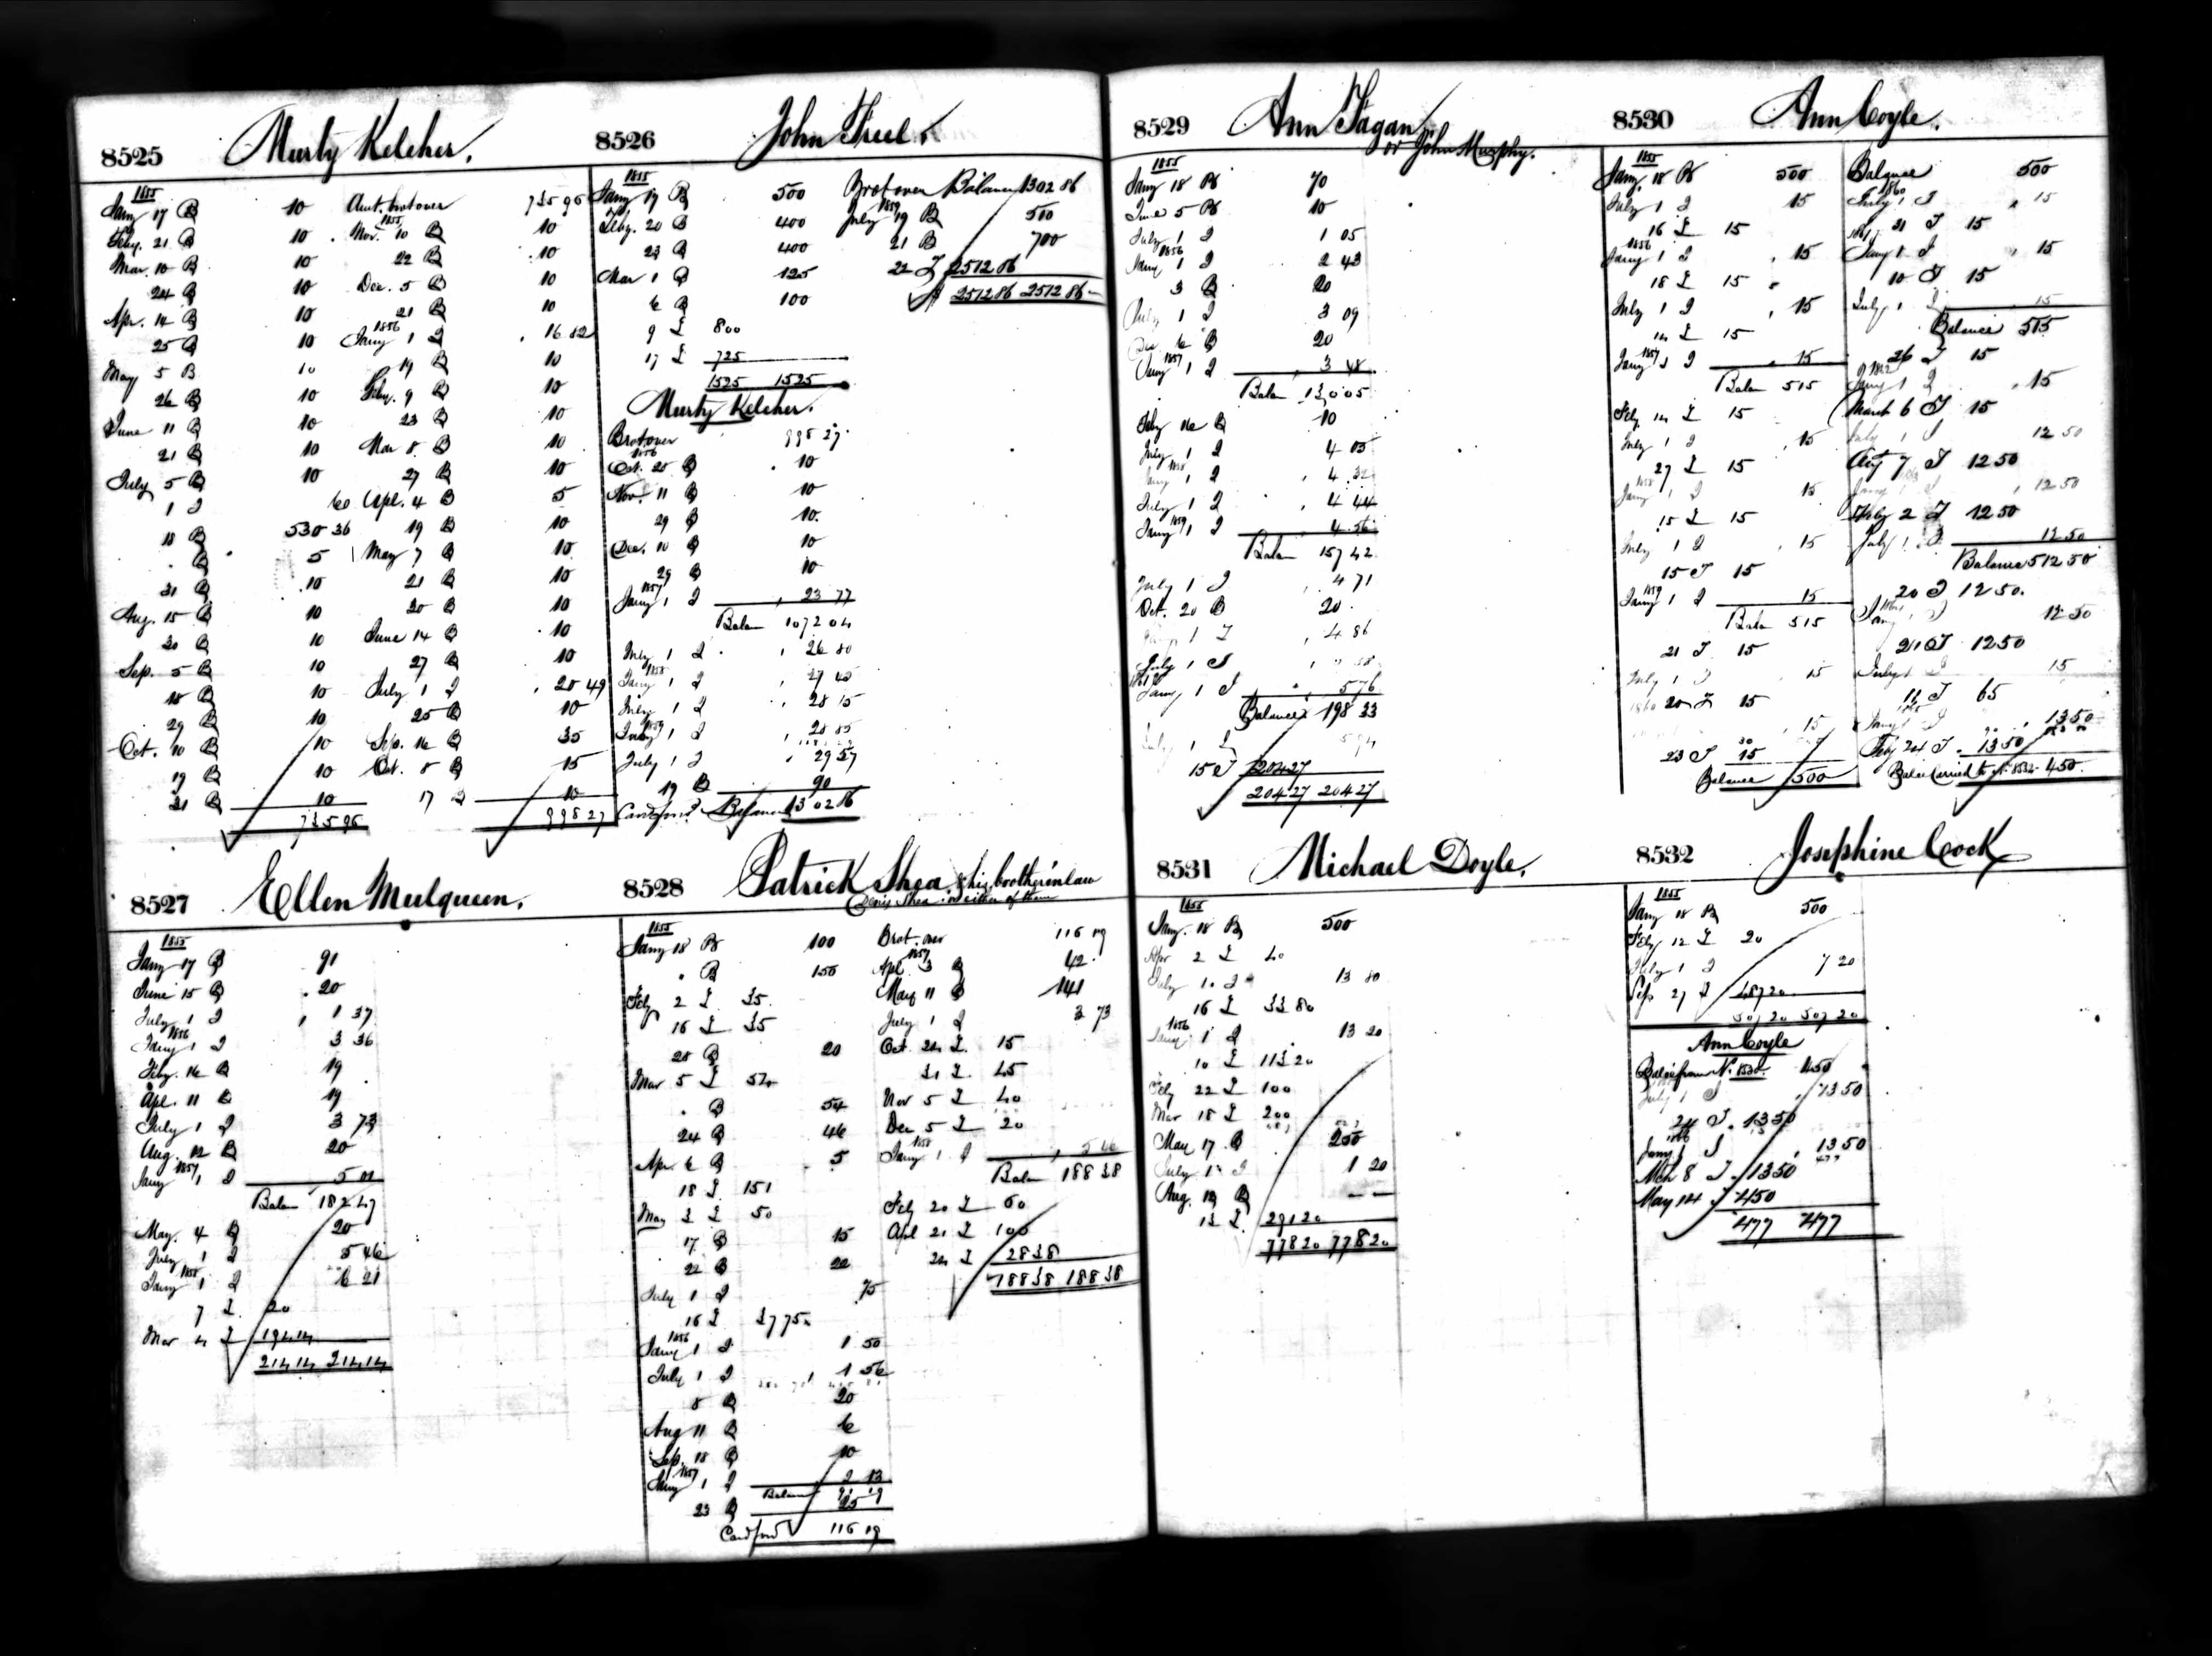 8525 Murty Kelcher.
1855
Jany 17 B 10
Feby. 21 B 10
Mar. 10 B 10
24 B 10
Apr. 14 B 10
25 B 10
May 5 B 10
26 B 10
June 11 B 10
21 B 10
July 5 B 10
1 I 60
18 B 530 36
" B 5
31 B 10
Aug. 15 B 10
30 B 10
Sep. 5 B 10
18 B 10
29 B 10
Oct. 10 B 10
19 B 10
31 B 10
735 96
Amt. brot over 735 96
1855
Nov. 10 B 10
22 B 10
Dec. 5 B 10
21 B 10
1856
Jany 1 I 16 82
19 B 10
Feby. 9 B 10
23 B 10
Mar 8 B 10
27 B 10
Apl. 4 B 5
19 B 10
May 7 B 10
21 B 10
B 10
June 14 B 10
27 B 10
July 1 I 20 49
25 B 10
Sep. 16 B 35
Oct. 8 B 15
17 10
998 27
8526 John Freel.
1855
Jany 17 B 500
Feby. 20 B 400
23 B 400
Mar 1 B 125
6 B 100
9 L 800
17 L 725
1525 1525
Murty Kelcher.
Brot over 998 27
1856
Oct. 25 B 10
Nov. 11 B 10
29 B 10
Dec. 10 B 10
29 B 10
1857
Jany 1 I 23 77
Balan 1072 04
July 1 I 26 80
1858
Jany 1 I 27 45
July 1 I 28 15
1859
Jany 1 I 28 85
July 1 I 29 57
19 B 90
Card ford Balance 1302 86
Brot over Balance 1302 86
1859
July 19 B 510
21 B 700
22 I 2512 86
2512 86 2512 86
8527 Ellen Mulqueen.
1855
Jany 17 B 91
June 15 B 20
July 1 I 1 37
1856
Jany 1 I 3 36
Feby. 16 B 19
Apl. 11 B 19
July 1 I 3 73
Aug. 12 B 20
1857
Jany 1 I 5 01
Balan 182 47
May. 4 B 20
July 1 I 5 46
1858
Jany 1 I 6 21
7 L 20
Mar 4 L 194 14
214 14 214 14
8528 Patrick Shea & his brother in law
Denis Shea or either of them
1855
Jany 18 B 100
" B 150
Feby 2 L 35
16 L 35
28 B 20
Mar 5 L 54
" B 54
24 B 46
Apr. 6 B 5
18 L 151
May 3 L 50
17 B 15
22 B 22
July 1 I 75
16 L 37 75
1856
Jany 1 I 1 50
July 1 I 1 56
8 B 20
Aug 11 B 6
Sep. 18 B 10
1857
Jany 1 I 2 13
Balance 91 19
23 B 25
Card ford 116 19
Brot. over 116 19
1857
Apl. 3 B 42
May 11 B 141
July 1 I 3 73
Oct. 24 L 15
31 L 45
Nov 5 L 40
Dec 5 L 20
1858
Jany 1 I 5 46
Balan 188 38
Feby 20 L 60
Apl 21 L 100
24 L 28 38
188 38 188 38
8529 Ann Fagan
or John Murphy.
1855
Jany 18 B 70
June 5 B 10
July 1 I 1 05
1856
Jany 1 I 2 43
3 B 20
July 1 I 3 09
Dec 6 B 20
1857
Jany 1 I 3 48
Balan 130 05
Feby 16 B 10
July 1 I 4 05
1858
Jany 1 I 4 32
July 1 I 4 44
1859
Jany 1 I 4 56
Balan 157 42
July 1 I 4 71
Oct. 20 B 20
1 I 4 86
July 1 I
Jany 1 I 5 76
Balance 198 33
July 1 I 5 94
15 I 204 27
204 27 204 27
8530 Ann Coyle.
1855
Jany. 18 B 500
July 1 I 15
16 L 15
1856
Jany 1 I 15
18 L 15
July 1 I 15
14 L 15
1857
Jany 1 I 15
Balan 515
Feby 14 L 15
July 1 I 15
27 L 15
1858
Jany 1 I 15
15 L 15
July 1 I 15
15 I 15
1859
Jany 1 I 15
Balan 515
21 I 15
July 1 I 15
1860 20 I 15
15
23 I 15
Balance 500
Balance 500
1860
July 1 I 15
21 I 15
Jany 1 I 15
10 I 15
July 1 I 15
Balance 515
26 I 15
1862
Jany 1 I 15
March 6 I 15
July 1 I 12 50
Aug 7 I 12 50
Jany 1 I 12 50
Feby 2 I 12 50
July 1 I 12 50
Balance 512 50
20 I 12 50
1864
Jany 1 I 12 50
21 I 12 50
July 1 I 15
11 I 65
1865
Jany 1 I 13 50
Feby 24 I 13 50
Balce Carried to No. 8532 450
8531 Michael Doyle.
1855
Jany. 18 B 500
Apr 2 L 40
July 1 I 13 80
16 L 33 80
1856
Jany 1 I 13 20
10 L 113 20
Feby 22 L 100
Mar 18 L 200
May 17 B 250
July 1 I 1 20
Aug. 12 B — —
13 L 291 20
778 20 778 20
8532 Josephine Cock
1855
Jany 18 B 500
Feby 12 L 20
July 1 I 7 20
Sep 27 L 487 20
507 20 507 20
Ann Coyle
Balce from No. 8530 450
July 1 I 13 50
24 I 13 50
1866
Jany 1 I 13 50
Mch 8 I 13 50
May 14 I 450
477 477